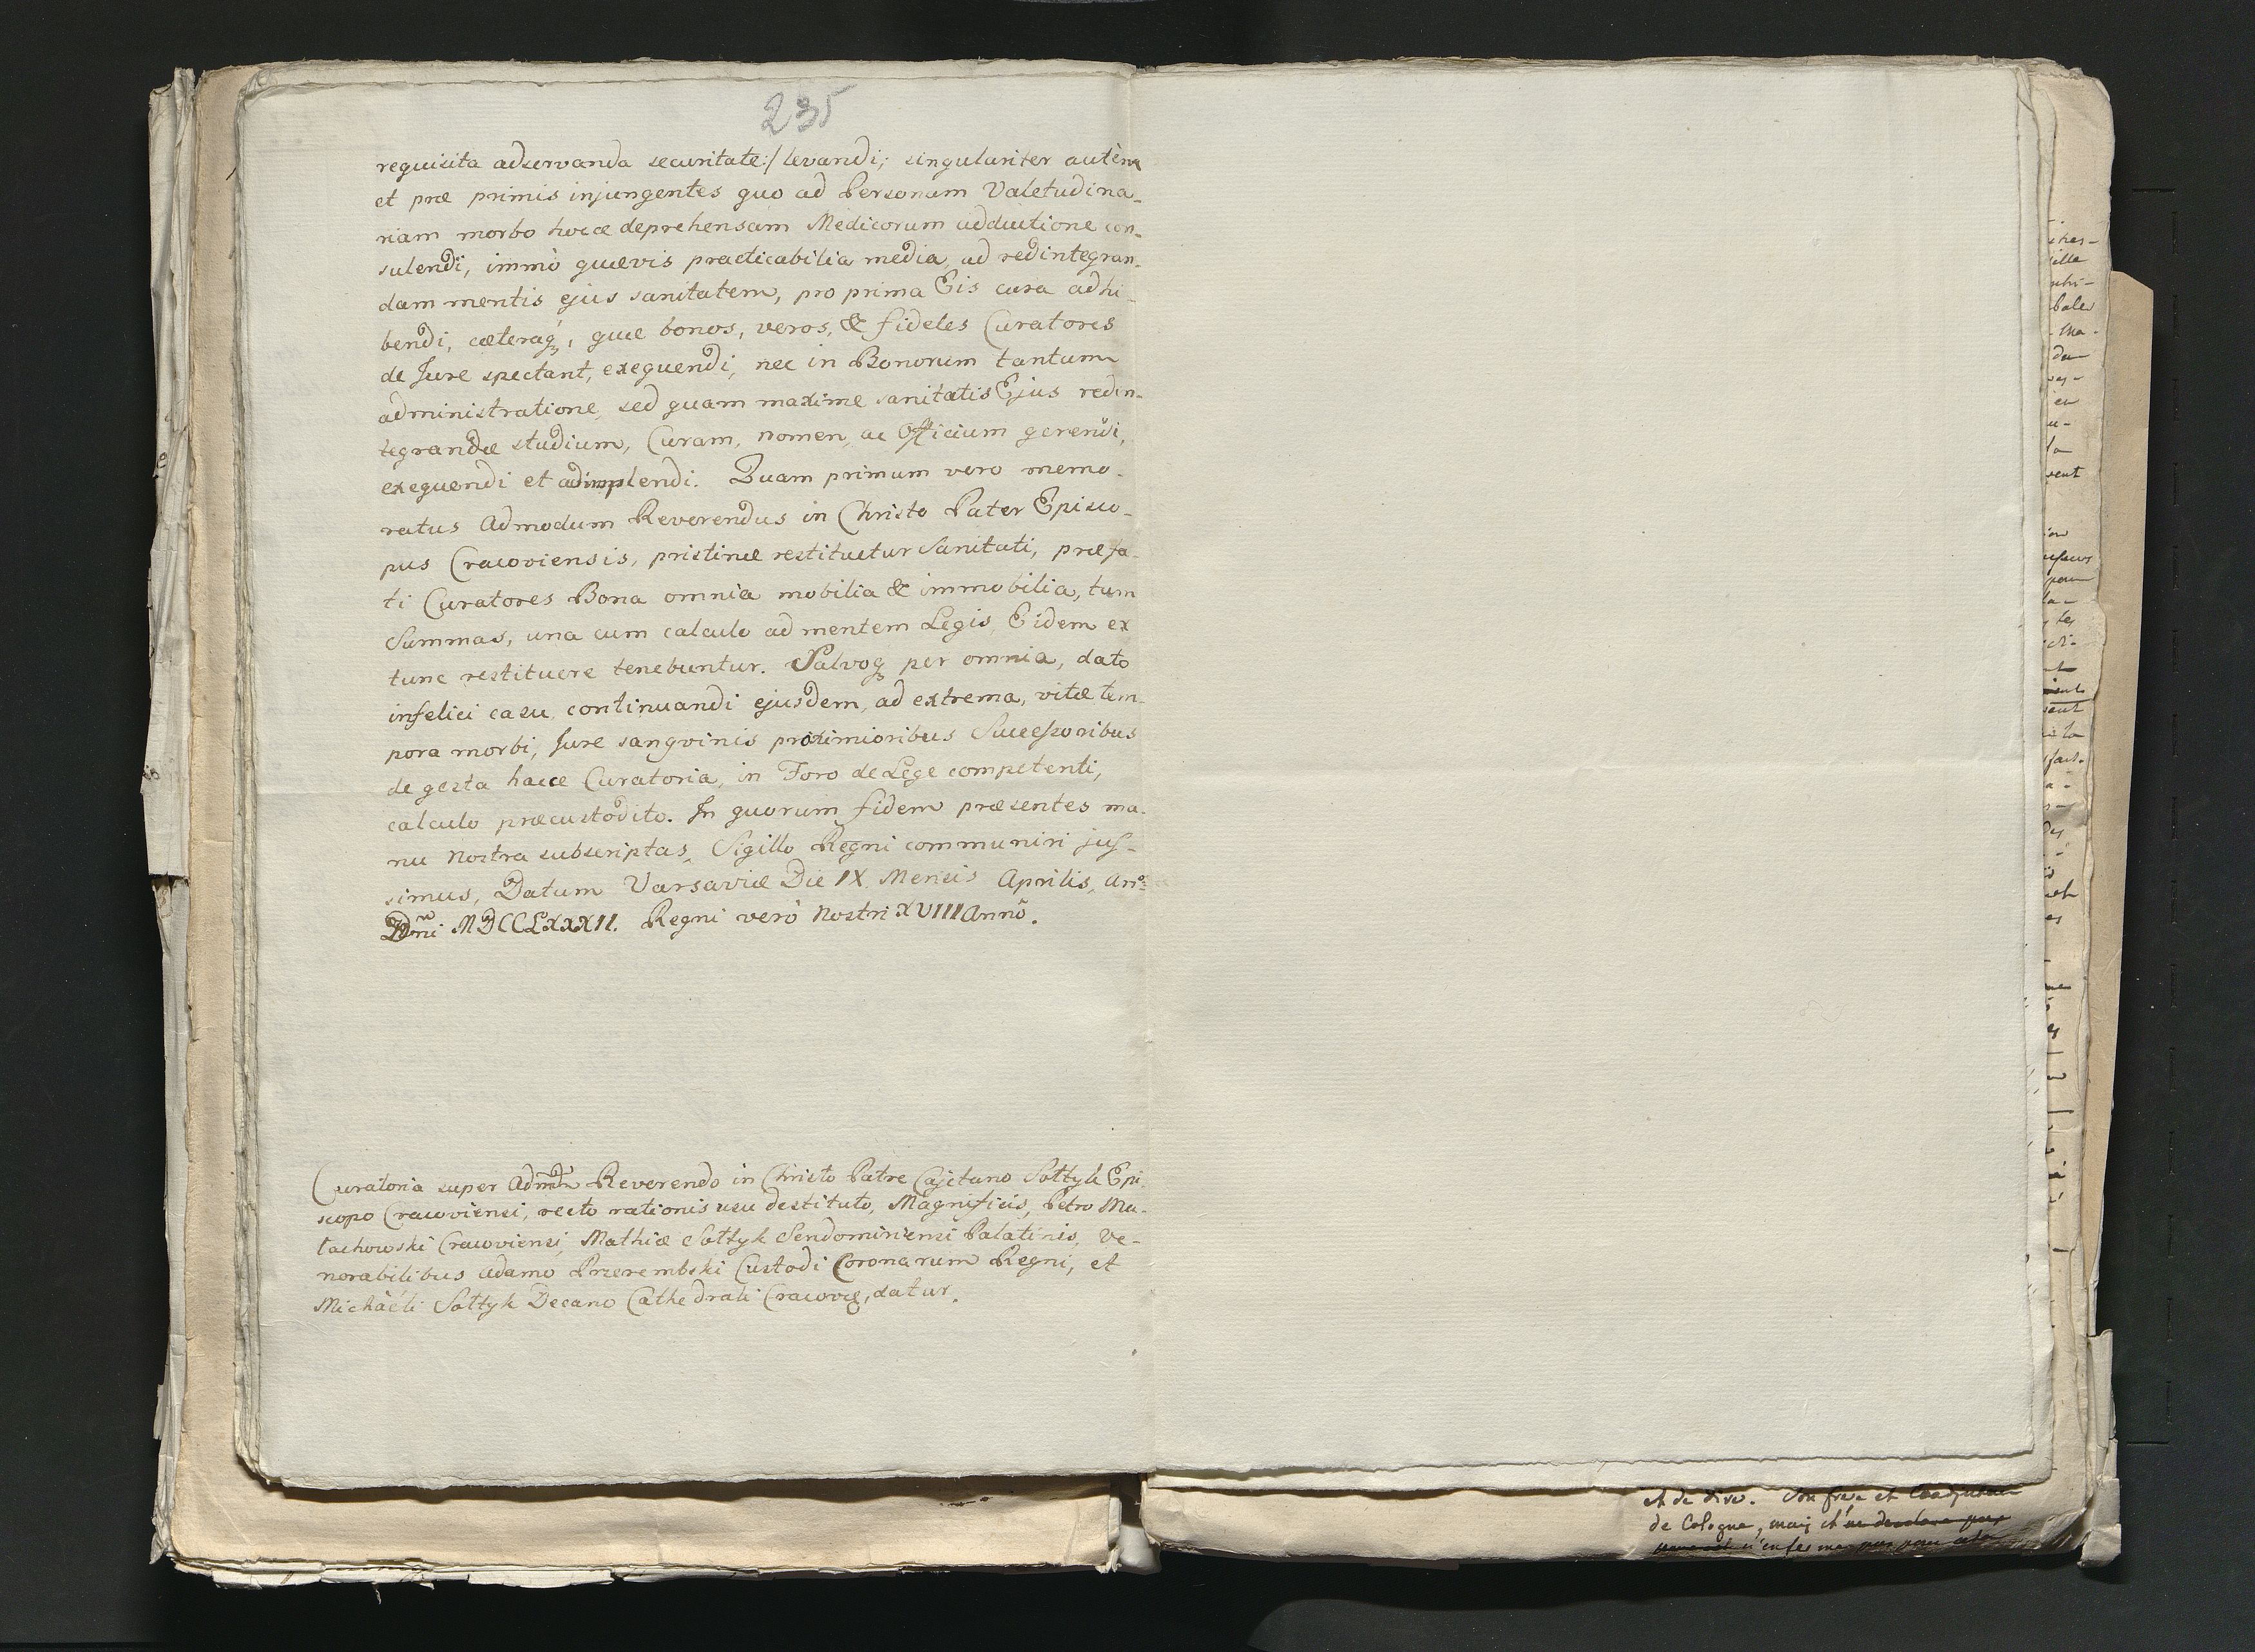 235
requisita adservanda securitate:/ levandi; singulariter autem
et præ primis injungentes quo ad Personam Valetudina-
riam morbo hocce deprehensam Medicorum adductione con-
sulendi, immò quævis practicabilia media, ad redintegran-
dam mentis ejus sanitatem, pro prima Eis cura adhi-
bendi, cæteraq́ȝ, quæ bonos, veros, & fideles Curatores
de Jure spectant, exequendi, nec in Bonorum tantum
administratione, sed quam maxime sanitatis Ejus redin-
tegrandæ studium, Curam, nomen, ac Officium gerendi,
exequendi et adimplendi. Quam primum vero memo-
ratus Admodum Reverendus in Christo Pater Episco-
pus Cracoviensis, pristinæ restituetur Sanitati, præfa-
ti Curatores Bona omnia mobilia & immobilia, tum
Summas, una cum calculo ad mentem Legis, Eidem ex
tunc restituere tenebuntur. Salvoqȝ per omnia, dato
infelici casu, continuandi ejusdem, ad extrema, vitæ tem-
pora morbi, Jure sangvinis proximioribus Successoribus
de gesta hacce Curatoria, in Foro de Lege competenti,
calculo præcustodito. In quorum fidem præsentes ma-
nu Nostra subscriptas, Sigillo Regni communiri jus-
simus, Datum Varsaviæ Die IX. Mensis Aprilis, Anº:
Dñni MDCCLXXXII. Regni verò Nostri XVIII Annô.
Curatoria super Admdm Reverendo in Christo Patre Cajetano Sołtyk Epi-
scopo Cracoviensi, recto rationis usu destituto, Magnificis, Petro Ma-
łachowski Cracoviensi, Mathiæ Sołtyk Sendomiriensi Palatinis, Ve-
nerabilibus Adamo Przerembski Custodi Coronarum Regni, et
Michaëli Sołtyk Decano Cathedrali Cracoviæ, datur.
et de dire. Son frere et Coadjuteur
de Cologne, mais